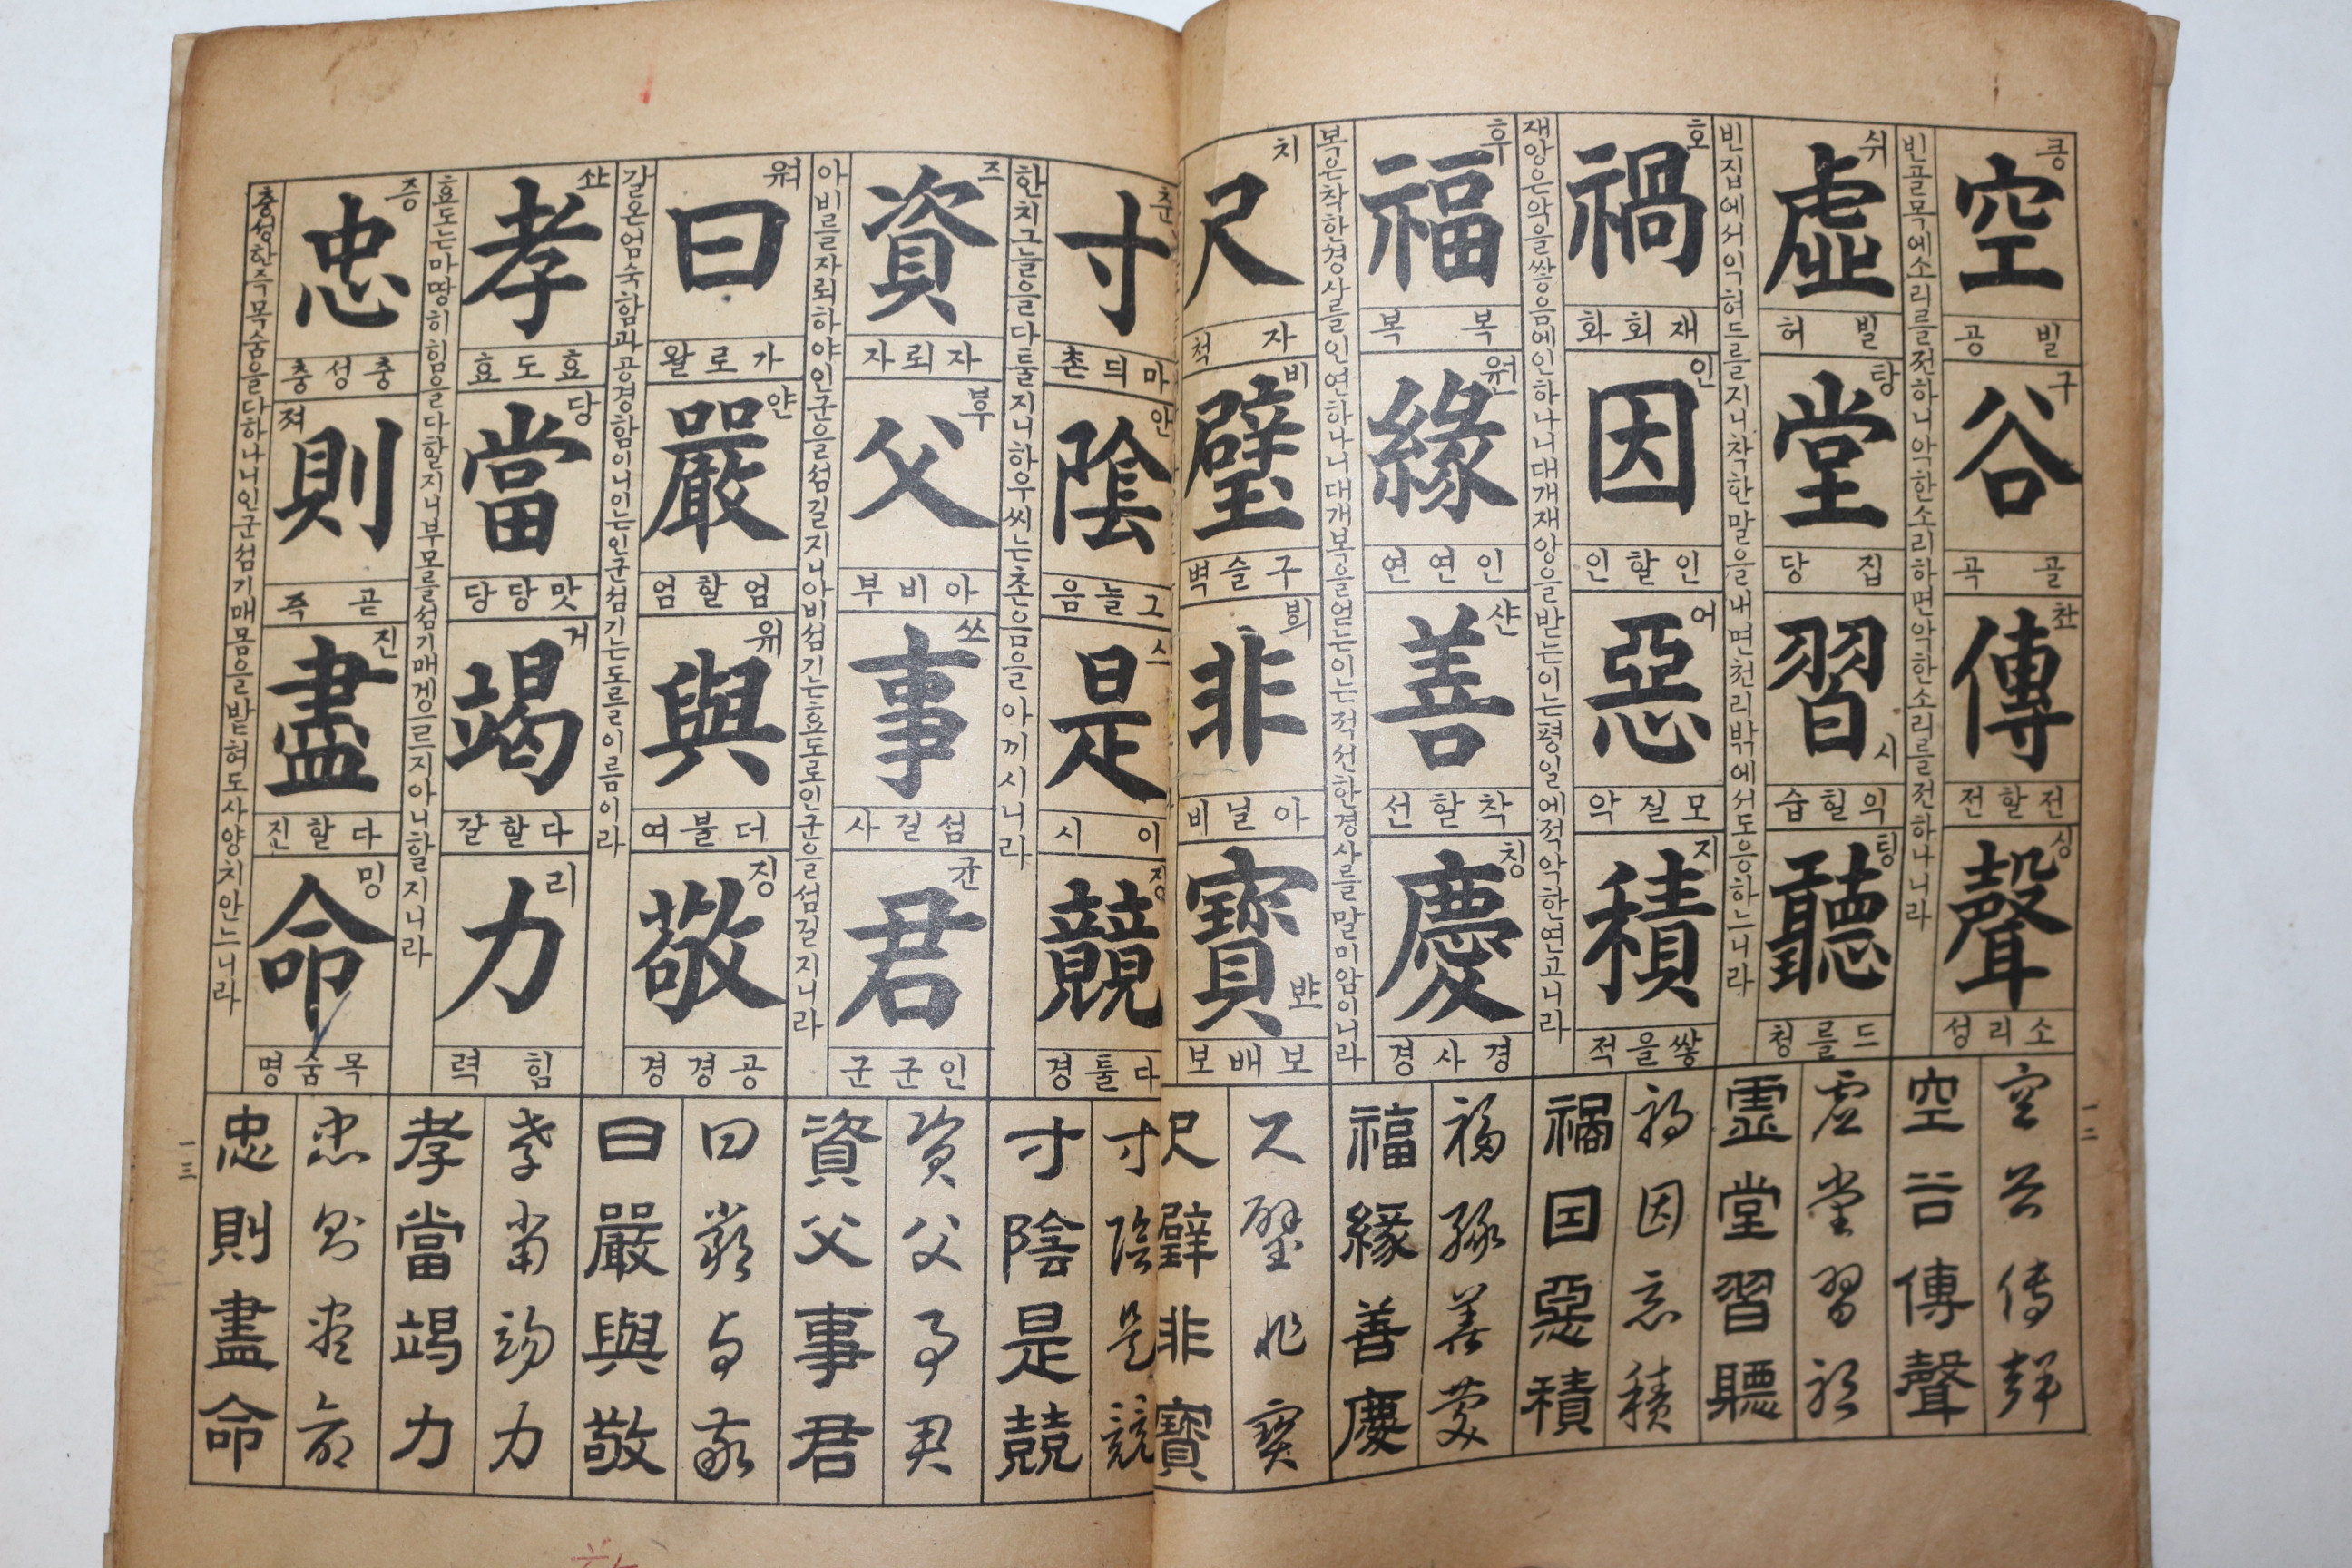 콩
空
빌 공
구
谷
골 곡
촨
傳
전할전
싱
聲
소리성
빈골목에소리를전하니악한소리하면악한소리를전하나니라
쉬
虛
빌 허
탕
堂
집 당
시
習
익힐습
팅
聽
드를청
빈집에서익혀드를지니착한말을내면천리밖에서도응하느니라
호
禍
재회화
인
因
인할인
어
惡
모질악
지
積
쌓을적
재앙은악을쌓음에인하나니대개재앙을받는이는평일에적악한연고니라
후
福
복 복
원
緣
인연연
샨
善
착할선
칭
慶
경사경
복은착한경사를인연하나니대개복을얻는이는적선한경사를말미암이니라
치
尺
자 척
비
璧
구슬벽
非
아닐비
뱌
寶
보배보
춘
寸
마듸촌
안
陰
그늘음
스
是
이 시
징
競
다툴경
한치그늘을다툴지니하우씨는촌음을아끼시니라
즈
資
자뢰자
父
아비부
쓰
事
섬길사
균
君
인군군
아비를자뢰하야인군을섬길지니아비섬기는효도로인군을섬길지니라
曰
가로왈
얀
嚴
엄할엄
위
與
더불여
징
敬
공경경
갈온엄숙함과공경함이니이는인군섬기는도를이름이라
孝
효도효
당
當
맛당당
거
竭
다할갈
리
力
힘 력
효도는마땅히힘을다할지니부모를섬기매게으르지아니할지니라
중
忠
충성충
져
則
곧 즉
진
盡
다할진
밍
命
목숨명
충성한즉목숨을다하나니인군섬기매몸을받혀도사양치안느니라
空谷傳聲
空谷傳聲
虛堂習聽
虛堂習聽
禍因惡積
禍因惡積
福緣善慶
福緣善慶
尺璧非寶
尺璧非寶
寸陰是競
寸陰是競
資父事君
資父事君
曰嚴與敬
曰嚴與敬
孝當竭力
孝當竭力
忠則盡命
忠則盡命
一二
一三